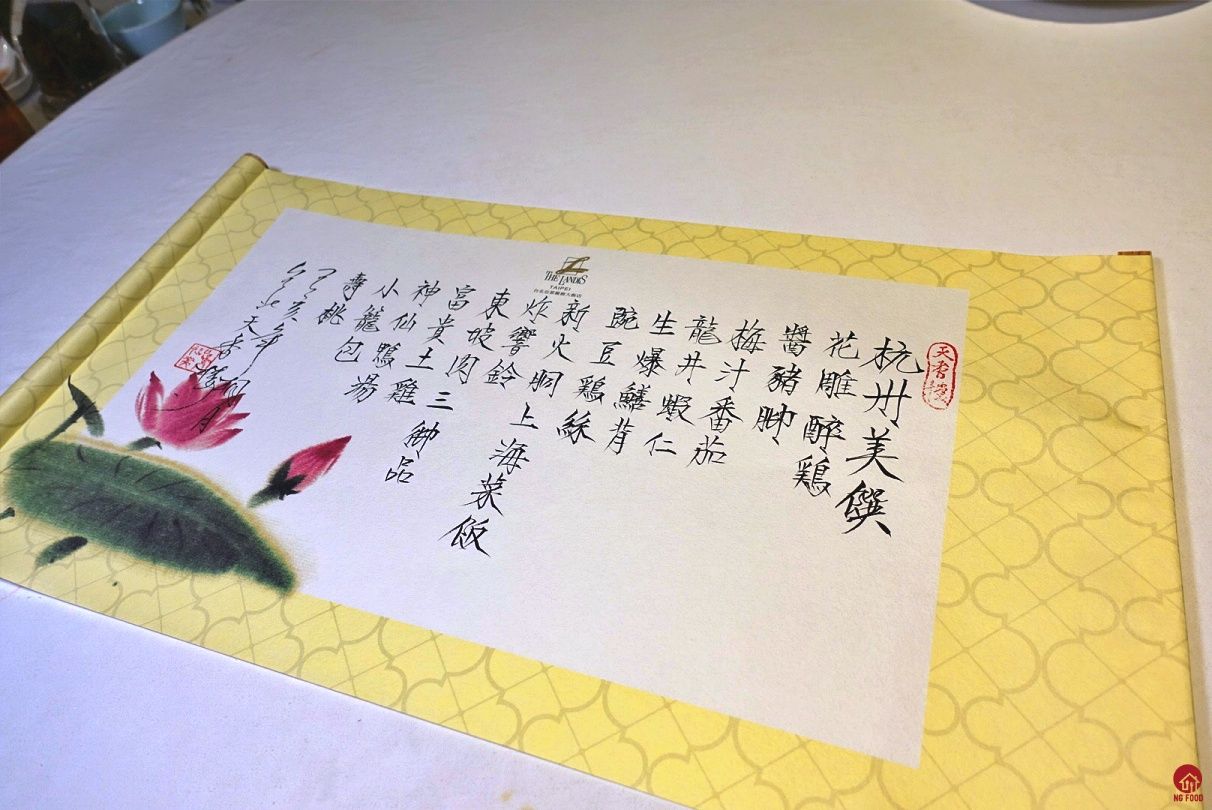 天香樓
THE LANDIS
TAIPEI
台北亞都麗緻大飯店
杭州美饌
花雕醉鶏
醬豬腳
梅汁番茄
龍井蝦仁
生爆鱔背
豌豆鶏絲
新火胴上海菜飯
炸響鈴
東坡肉三御品
富貴土雞
神仙鴨湯
小籠包
壽桃
己亥年月
台北天香樓
NG FOOD